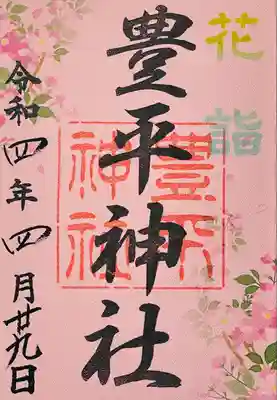 花詣
豊平神社
豊平神社
令和四年四月廿九日